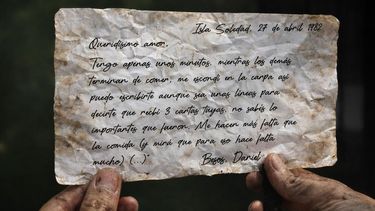 Isla Soledad, 27 de abril 1982
Queridísimo amor,
Tengo apenas unos minutos, mientras los demás
terminan de comer, me escondí en la carpa así
puedo escribirte aunque sea unas líneas para
decirte que recibí 3 cartas tuyas, no sabés lo
importantes que fueron. Me hacen más falta que
la comida (y mirá que para eso hace falta
mucho) (...)" Besos, Daniel